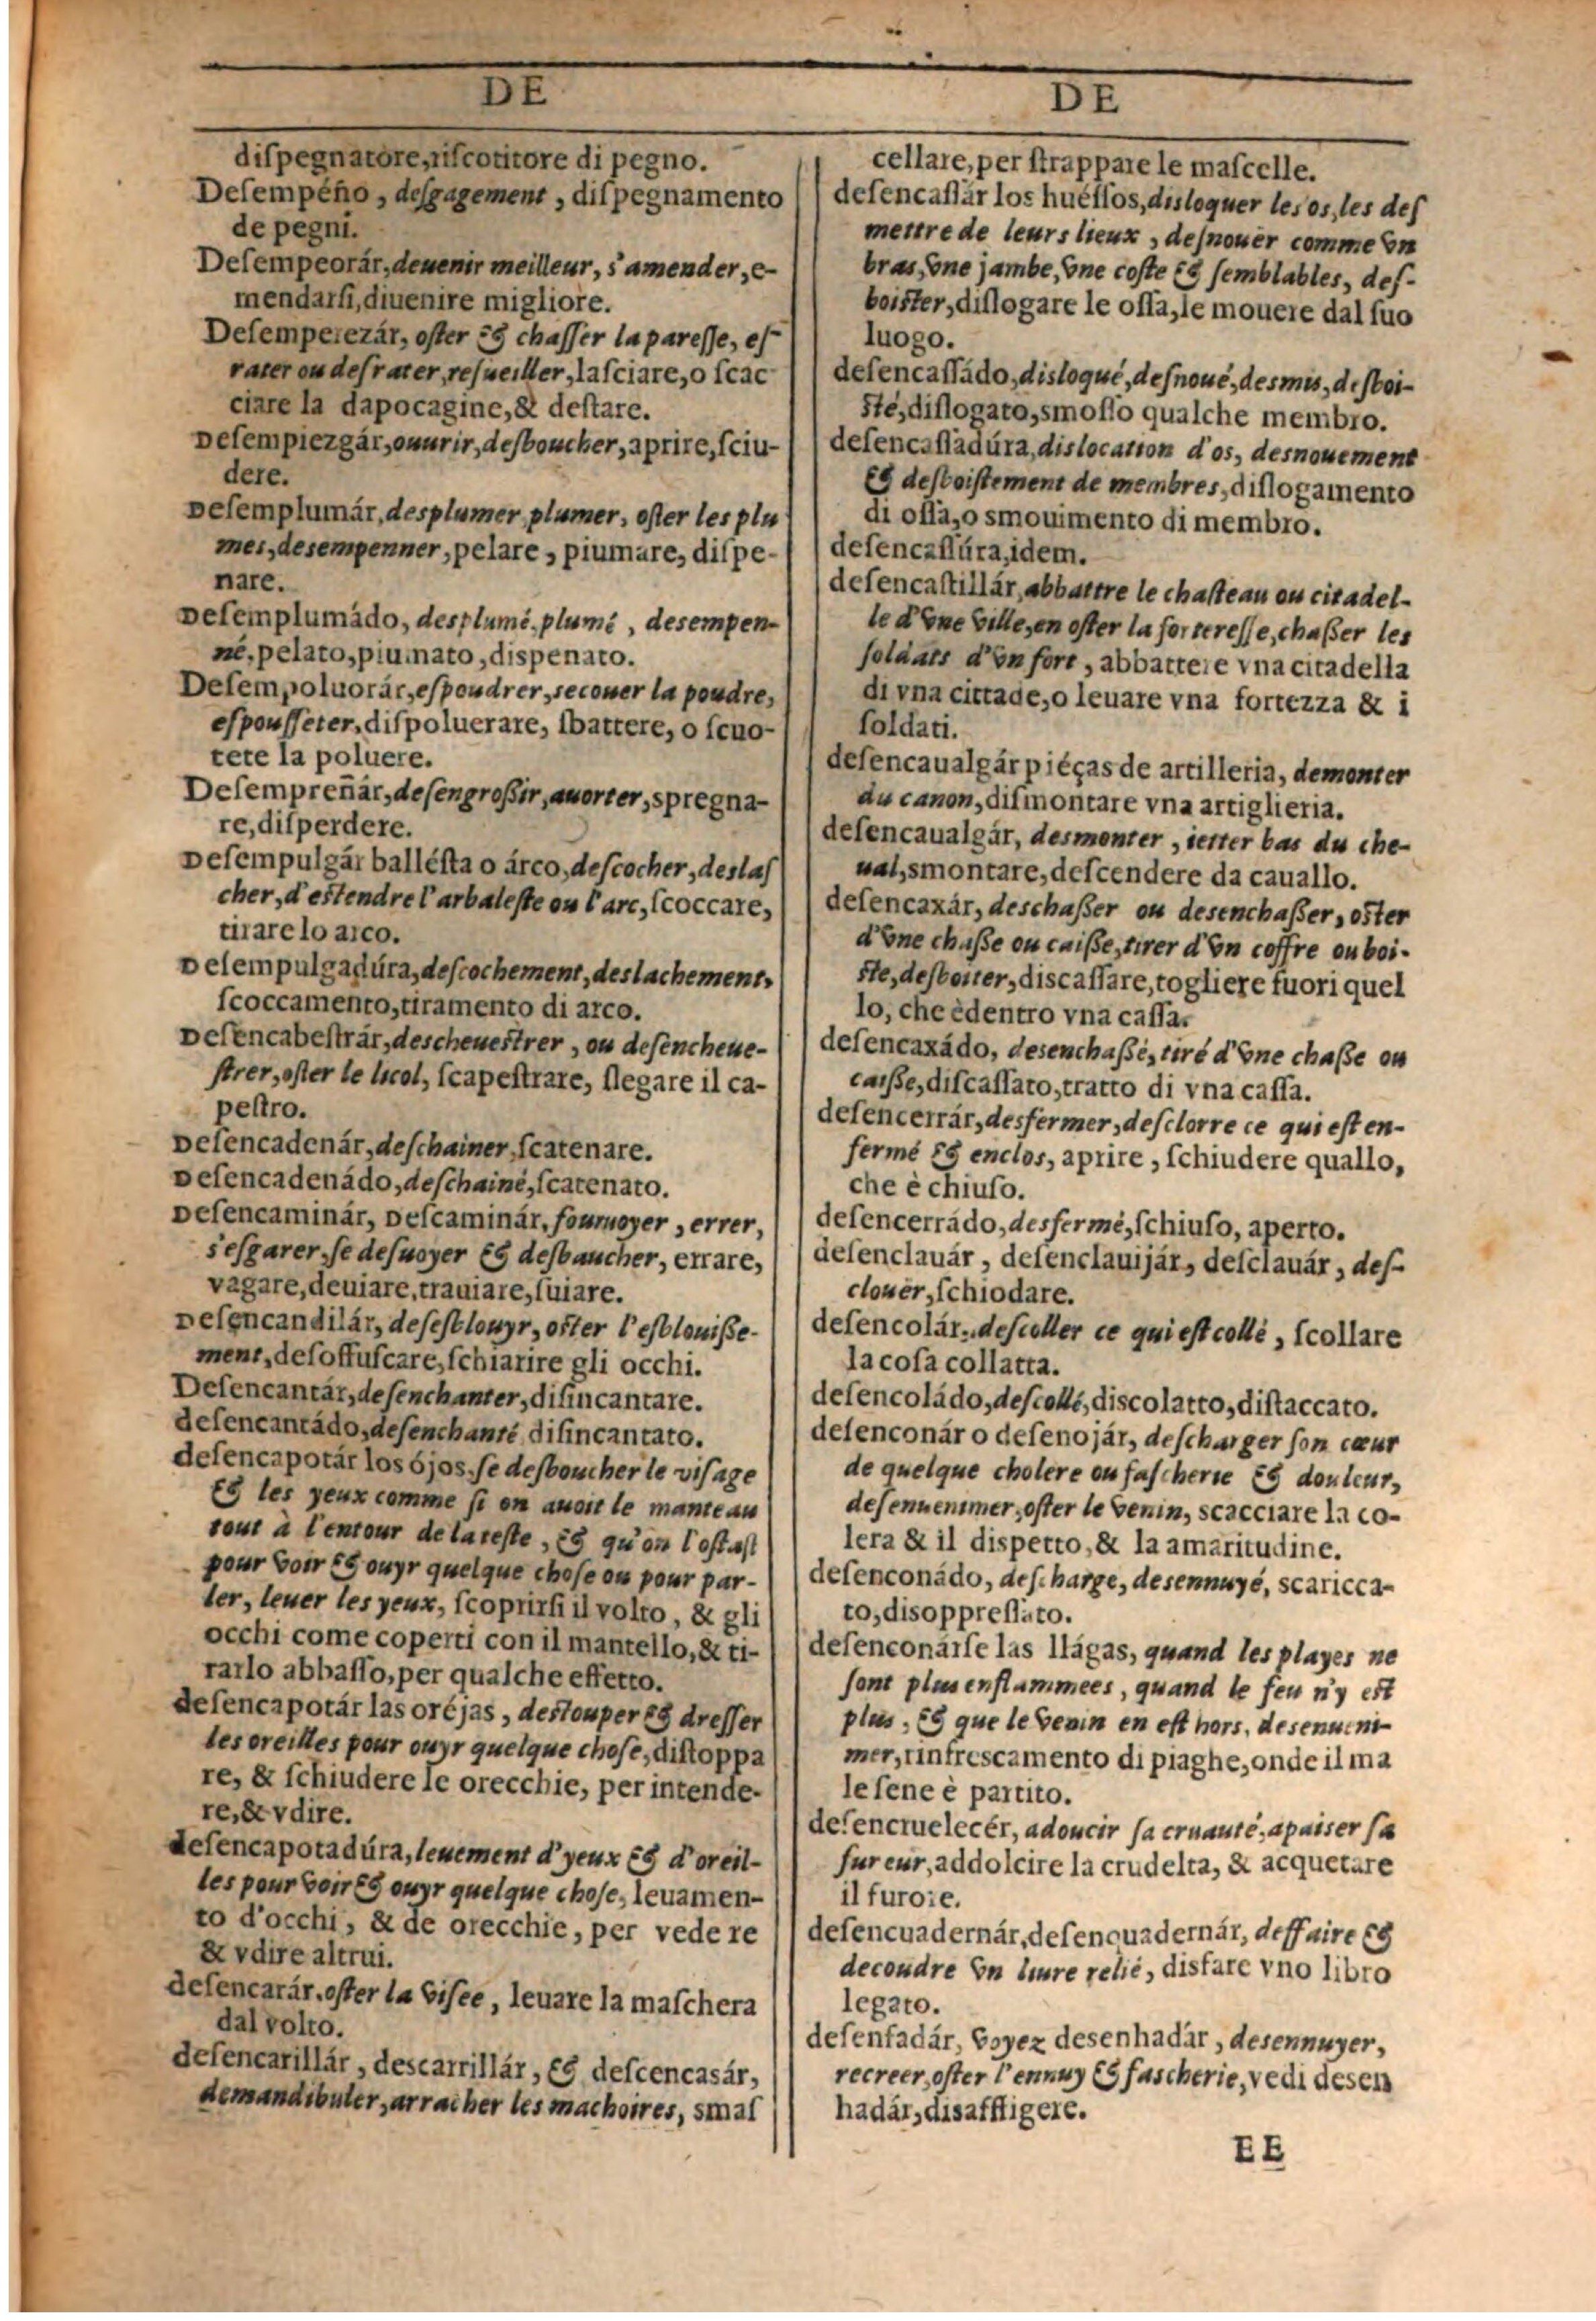 DE
diſpegnatore,riſcotitore di pegno.
Deſempéño, deſgagement, diſpegnamento
de pegni.
Deſempeorár,deuenir meilleur, s'amender,e-
mendarſi,diuenire migliore.
Deſemperezár, oſter & chaſſer la pareſſe, eſ-
rater ou deſrater,reſueiller,laſciare,o ſcac
ciare la dapocagine,& deſtare.
Deſempiezgár,ouurir,deſboucher,aprire,ſciu-
dere.
Deſemplumár,desplumer,plumer, oſter les plu
mes,desempenner,pelare, piumare, diſpe-
nare.
Deſemplumádo, desplumé,plumé, desempen-
né,pelato,piumato,dispenato.
Deſempoluorár,eſpoudrer,secouer la poudre,
eſpouſſeter,diſpoluerare, ſbattere, o ſcuo-
tete la poluere.
Deſempreñár,deſengroßir,auorter,spregna-
re,diſperdere.
Deſempulgár balléſta o árco,deſcocher,deslaſ
cher,d'eſtendre l'arbaleſte ou l'arc,ſcoccare,
tirare lo arco.
Deſempulgadúra,deſcochement,deslachement,
ſcoccamento,tiramento di arco.
Deſencabeſtrár,descheueſtrer, ou deſencheue-
ſtrer,oſter le licol, ſcapeſtrare, ſlegare il ca-
peſtro.
Deſencadenár,deſchainer,ſcatenare.
Deſencadenádo,deſchainé,ſcatenato.
Deſencaminár, Deſcaminár,fouruoyer, errer,
s'eſgarer,ſe deſuoyer & deſbaucher, errare,
vagare,deuiare,trauiare,ſuiare.
Deſencandilár, deſeſblouyr, oſter l'eſblouiße-
ment,deſoffuſcare,ſchiarire gli occhi.
Deſencantár,deſenchanter,diſincantare.
deſencantádo,deſenchanté,diſincantato.
deſencapotár los ójos,ſe deſboucher le viſage
& les yeux comme ſi on auoit le manteau
tout à l'entour de la teſte, & qu'on l'oſtaſt
pour voir & ouyr quelque choſe ou pour par-
ler, leuer les yeux, ſcoprirſi il volto, & gli
occhi come coperti con il mantello,& ti-
rarlo abbaſſo,per qualche effetto.
deſencapotár las oréjas, deſtouper & dreſſer
les oreilles pour ouyr quelque choſe,diſtoppa
re, & ſchiudere le orecchie, per intende-
re,& vdire.
deſencapotadúra,leuement d'yeux & d'oreil-
les pour voir & ouyr quelque choſe, leuamen-
to d'occhi, & de orecchie, per vede re
& vdire altrui.
deſencarár,oſter la viſee, leuare la maſchera
dal volto.
deſencarillár, descarrillár, & deſcencasár,
demandibuler,arracher les machoires, smaſ
DE
cellare,per ſtrappare le maſcelle.
deſencaſſár los huéſſos,disloquer les os,les deſ
mettre de leurs lieux, deſnouër comme vn
bras,vne jambe,vne coſte & ſemblables, deſ-
boiſter,diſlogare le oſſa,le mouere dal ſuo
luogo.
deſencaſſádo,disloqué,deſnoué,desmis,deſboi-
ſté,diſlogato,smoſſo qualche membro.
deſencaſſadúra,dislocation d'os, desnouement
& deſboiſtement de membres,diſlogamento
di oſſa,o smouimento di membro.
deſencaſſúra,idem.
deſencaſtillár,abbattre le chaſteau ou citadel-
le d'vne ville,en oſter la fortereſſe,chaßer les
ſoldats d'vn fort, abbattere vna citadella
di vna cittade,o leuare vna fortezza & i
ſoldati.
deſencaualgár piéças de artilleria, demonter
du canon,diſmontare vna artiglieria.
deſencaualgár, desmonter, ietter bas du che-
ual,smontare,deſcendere da cauallo.
deſencaxár, deschaßer ou desenchaßer, oſter
d'vne chaße ou caiße,tirer d'vn coffre ou boi-
ſte,deſboiter,discaſſare,togliere fuori quel
lo, che èdentro vna caſſa.
deſencaxádo, desenchaßé, tiré d'vne chaße ou
caiße,diſcaſſato,tratto di vna caſſa.
deſencerrár,desfermer,deſclorre ce qui eſt en-
fermé & enclos, aprire, ſchiudere quallo,
che è chiuſo.
deſencerrádo,desfermé,ſchiuſo, aperto.
deſenclauár, deſenclauijár, deſclauár, deſ-
clouër,ſchiodare.
deſencolár,deſcoller ce qui eſt collé, ſcollare
la coſa collatta.
deſencoládo,deſcollé,discolatto,diſtaccato.
deſenconár o deſenojár, deſcharger ſon cœur
de quelque cholere ou faſcherie & douleur,
deſenuenimer,oſter le venin, scacciare la co-
lera & il dispetto,& la amaritudine.
deſenconádo, deſcharge, desennuyé, scaricca-
to,disoppreſſato.
deſenconárſe las llágas, quand les playes ne
ſont plus enflammees, quand le feu n'y eſt
plus, & que le venin en eſt hors, desenueni-
mer,rinfrescamento di piaghe,onde il ma
le ſene è partito.
deſencruelecér, adoucir ſa cruauté,apaiser ſa
fureur,addolcire la crudelta, & acquetare
il furore.
deſencuadernár,deſenquadernár, deffaire &
decoudre vn liure relié, disfare vno libro
legato.
deſenfadár, voyez desenhadár, desennuyer,
recreer,oſter l'ennuy & fascherie,vedi desen
hadár,disaffligere.
EE